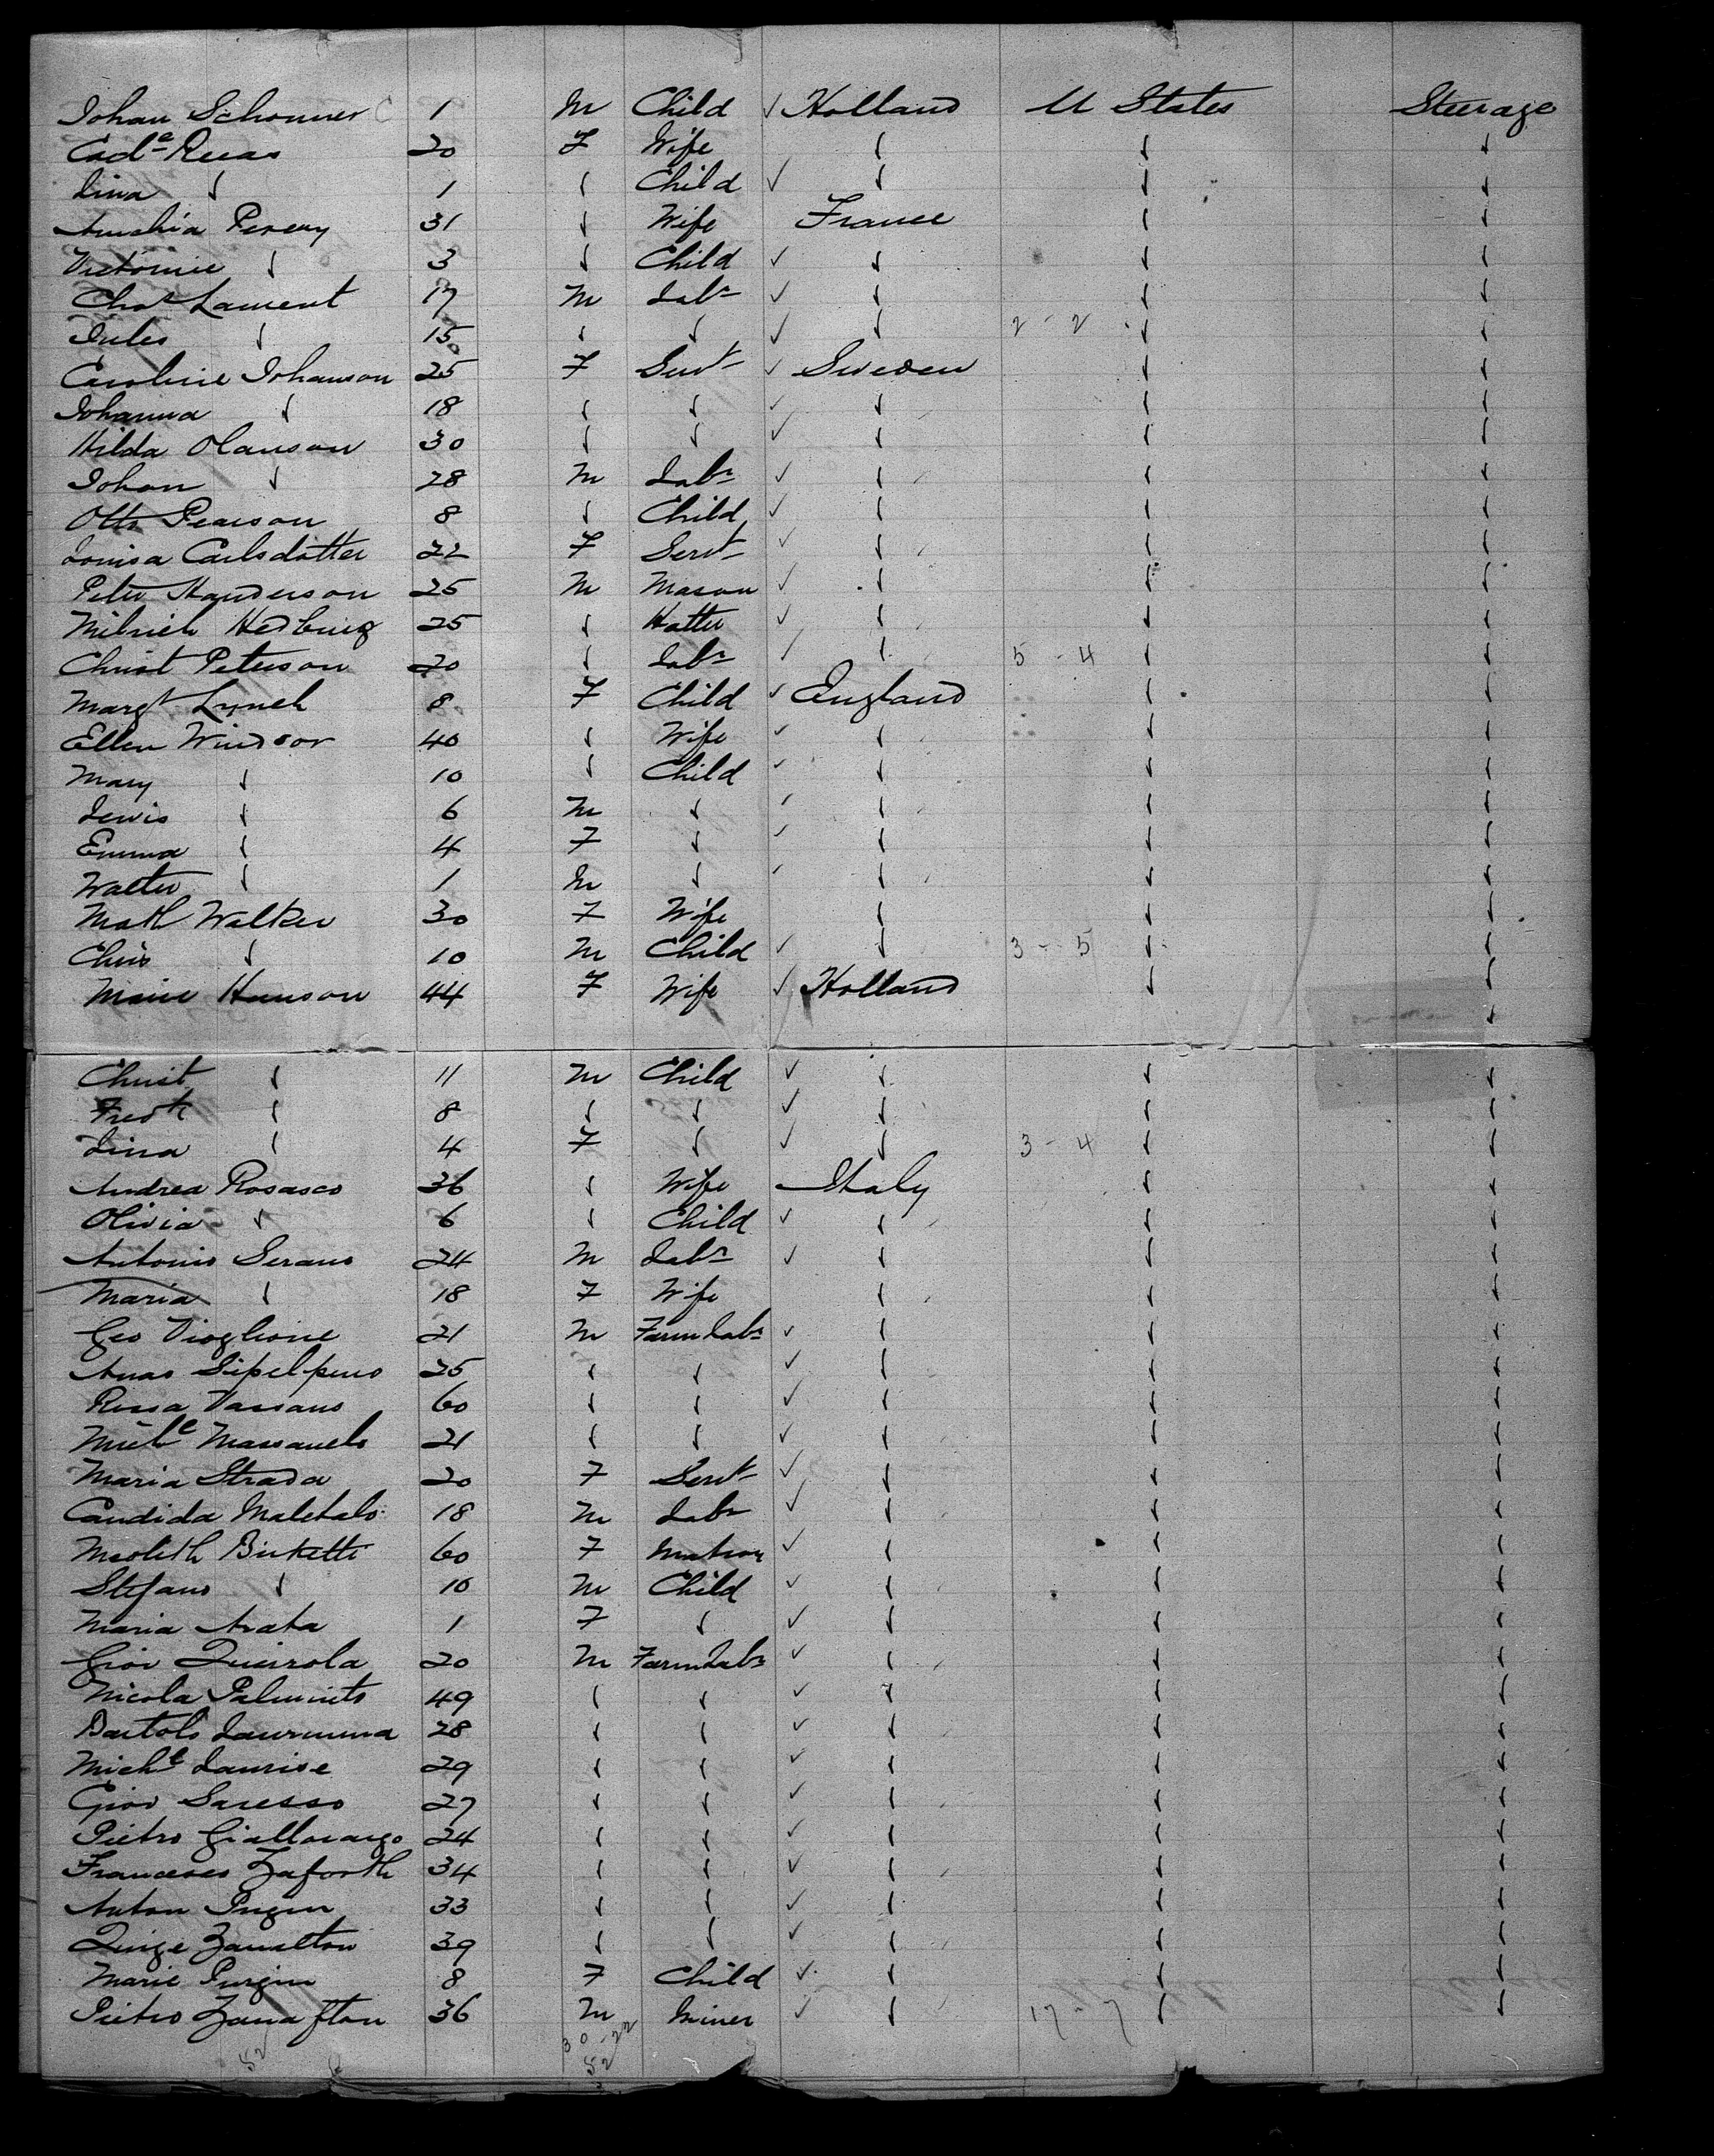 Johan Schonner C 1 M Child ✓ Holland U States Steerage
Cad^e Recas 20 F Wife ✓ ✓ ✓
Lina ✓ 1 ✓ Child ✓ ✓ ✓ ✓
Amelia Perery 31 ✓ Wife France ✓ ✓
Victorine ✓ 3 ✓ Child ✓ ✓ ✓ ✓
Chas Laurent 17 M Labr ✓ ✓ ✓ ✓
Jules ✓ 15 ✓ ✓ ✓ ✓ 2 - 2 ✓ ✓
Caroline Johanson 25 F Servt ✓ Sweden ✓ ✓
Johanna ✓ 18 ✓ ✓ ✓ ✓ ✓ ✓
Hilda Olanson 30 ✓ ✓ ✓ ✓ ✓ ✓
Johan ✓ 28 M Labr ✓ ✓ ✓ ✓
Otto Pearson 8 ✓ Child ✓ ✓ ✓ ✓
Louisa Carlsdotter 22 F Servt ✓ ✓ ✓ ✓
Peter Handerson 25 M Mason ✓ ✓ ✓ ✓
Hedburg 25 ✓ Hatter ✓ ✓ ✓ ✓
Christ Peterson 20 ✓ Labr ✓ ✓ 5 - 4 ✓ ✓
Margt Lynch 8 F Child ✓ England ✓ ✓
Ellen Windsor 40 ✓ Wife ✓ ✓ ✓ ✓
Mary ✓ 10 ✓ Child ✓ ✓ ✓ ✓
Lewis ✓ 6 M ✓ ✓ ✓ ✓ ✓
Emma ✓ 4 F ✓ ✓ ✓ ✓ ✓
Walter ✓ 1 M ✓ ✓ ✓ ✓ ✓
Math Walker 30 F Wife ✓ ✓ ✓
Chris ✓ 10 M Child ✓ ✓ 3 - 5 ✓ ✓
Marie Hanson 44 F Wife ✓ Holland ✓ ✓
Christ ✓ 11 M Child ✓ ✓ ✓ ✓
Fredk ✓ 8 ✓ ✓ ✓ ✓ ✓ ✓
Lina ✓ 4 F ✓ ✓ ✓ 3 - 4 ✓ ✓
Andrea Rosasco 36 ✓ Wife Italy ✓ ✓
Olivia ✓ 6 ✓ Child ✓ ✓ ✓ ✓
Antonio Serano 24 M Labr ✓ ✓ ✓ ✓
Maria ✓ 18 F Wife ✓ ✓ ✓
Geo Vioglione 21 M Farm Labr ✓ ✓ ✓ ✓
25 ✓ ✓ ✓ ✓ ✓ ✓
Rosa Vassano 60 ✓ ✓ ✓ ✓ ✓ ✓
Massanelo 21 ✓ ✓ ✓ ✓ ✓ ✓
Maria Strada 20 F Servt ✓ ✓ ✓ ✓
Candida Maletalo 18 M Labr ✓ ✓ ✓ ✓
Birketti 60 F Matron ✓ ✓ ✓ ✓
Stefano ✓ 10 M Child ✓ ✓ ✓ ✓
Maria Arata 1 F ✓ ✓ ✓ ✓ ✓
Giov Queirola 20 M Farm Labr ✓ ✓ ✓ ✓
Nicola Palminto 49 ✓ ✓ ✓ ✓ ✓ ✓
Bartolo 28 ✓ ✓ ✓ ✓ ✓ ✓
Michl Laurise 29 ✓ ✓ ✓ ✓ ✓ ✓
Giov Saresso 27 ✓ ✓ ✓ ✓ ✓ ✓
Pietro Giallorargo 24 ✓ ✓ ✓ ✓ ✓ ✓
Francesco Zaforth 34 ✓ ✓ ✓ ✓ ✓ ✓
Anton Purgin 33 ✓ ✓ ✓ ✓ ✓ ✓
Zamalton 39 ✓ ✓ ✓ ✓ ✓ ✓
Marie Purgin 8 F Child ✓ ✓ ✓ ✓
Pietro Zanafton 36 M Miner ✓ ✓ 17 - 7 ✓ ✓
30 - 22
52 52